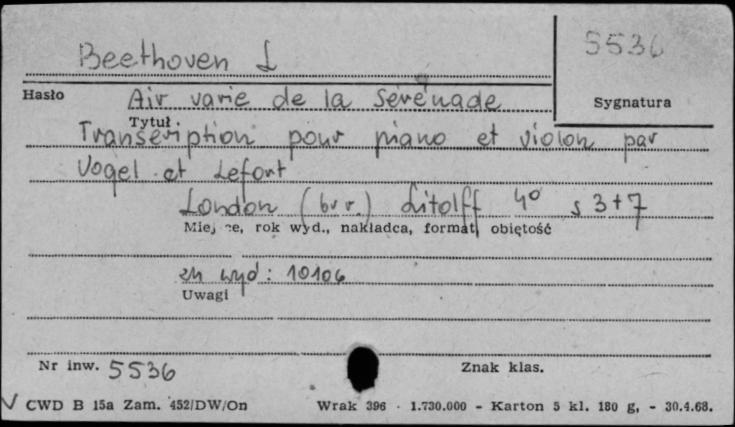 Beethoven L
5536
Hasło
Air varié de la Sérénade
Sygnatura
Tytuł
Transcription pour piano et violon par
Vogel et Lefort
London (b r r.) Litolff 4° s 3+7
Miejsce, rok wyd., nakładca, format, objętość
zn wyd: 10106
Uwagi
Nr inw. 5536
Znak klas.
V CWD B 15a Zam. 452/DW/On Wrak 396 - 1.730.000 - Karton 5 kl. 180 g, - 30.4.68.